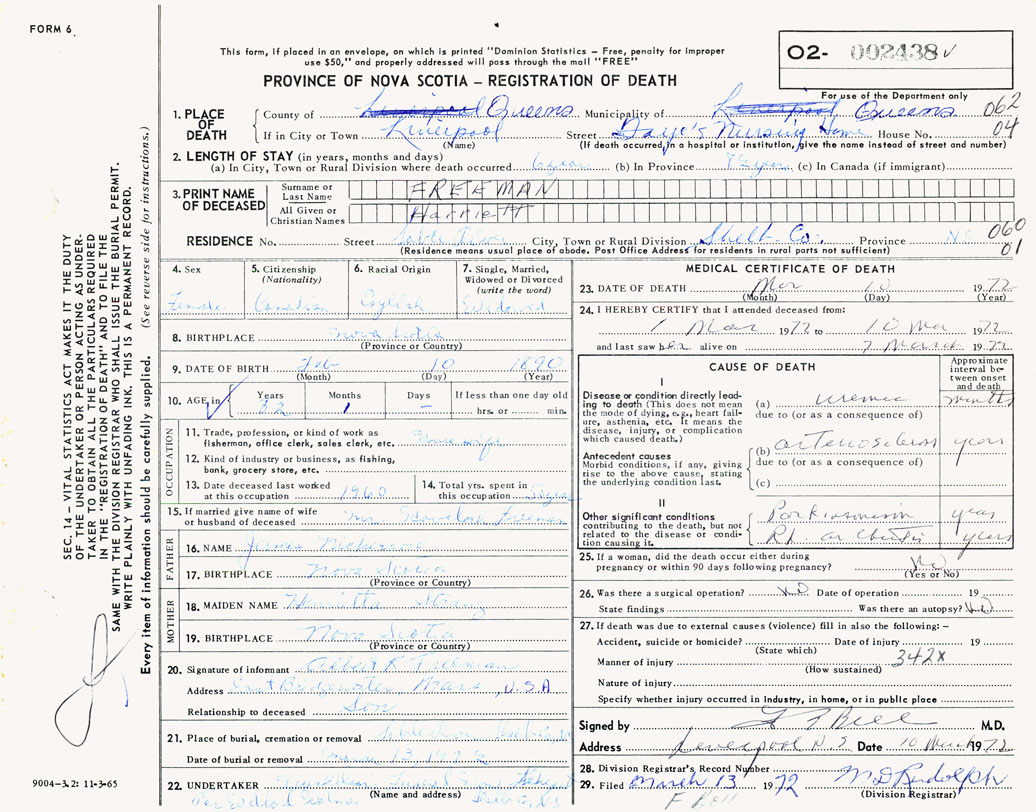 FORM 6
This form, if placed in an envelope, on which is printed "Dominion Statistics – Free, penalty for improper
use $50," and properly addressed will pass through the mail "FREE"
PROVINCE OF NOVA SCOTIA – REGISTRATION OF DEATH
O2- 002438
For use of the Department only
062
04
1. PLACE OF DEATH
County of Liverpool Queens Municipality of Liverpool Queens
If in City or Town Liverpool Street Nursing Home House No.
(Name) (If death occurred in a hospital or institution, give the name instead of street and number)
2. LENGTH OF STAY (in years, months and days)
(a) In City, Town or Rural Division where death occurred 6 years (b) In Province 82 years (c) In Canada (if immigrant)
3. PRINT NAME OF DECEASED
Surname or Last Name FREEMAN
All Given or Christian Names Harriett
060
01
RESIDENCE No. Street Sable River City, Town or Rural Division Shelb. Co. Province N.S.
(Residence means usual place of abode. Post Office Address for residents in rural parts not sufficient)
4. Sex
Female
5. Citizenship
(Nationality)
Canadian
6. Racial Origin
English
7. Single, Married, Widowed or Divorced
(write the word)
Widowed
8. BIRTHPLACE Nova Scotia
(Province or Country)
9. DATE OF BIRTH Feb 10 1890
(Month) (Day) (Year)
10. AGE in Years Months Days If less than one day old
82 1 – hrs. or min.
OCCUPATION
11. Trade, profession, or kind of work as
fisherman, office clerk, sales clerk, etc. House wife
12. Kind of industry or business, as fishing,
bank, grocery store, etc.
13. Date deceased last worked
at this occupation 1960
14. Total yrs. spent in
this occupation 50 years
15. If married give name of wife
or husband of deceased Mr. Freeman
FATHER
16. NAME James
17. BIRTHPLACE Nova Scotia
(Province or Country)
MOTHER
18. MAIDEN NAME Henrietta
19. BIRTHPLACE Nova Scotia
(Province or Country)
20. Signature of informant Albert K Freeman
Address East Bridgewater Mass, U.S.A
Relationship to deceased Son
21. Place of burial, cremation or removal
Date of burial or removal March 13, 1972
22. UNDERTAKER Funeral Home
(Name and address)
MEDICAL CERTIFICATE OF DEATH
23. DATE OF DEATH Mar 10 1972
(Month) (Day) (Year)
24. I HEREBY CERTIFY that I attended deceased from:
1 Mar 1972 to 10 Mar 1972
and last saw her alive on 7 March 1972
CAUSE OF DEATH
Approximate interval between onset and death
I
Disease or condition directly leading to death (This does not mean the mode of dying, e.g., heart failure, asthenia, etc. It means the disease, injury, or complication which caused death.)
(a) uremia months
due to (or as a consequence of)
Antecedent causes
Morbid conditions, if any, giving rise to the above cause, stating the underlying condition last.
(b) arteriosclerosis years
due to (or as a consequence of)
(c)
II
Other significant conditions
contributing to the death, but not related to the disease or condition causing it.
Parkinsonism years
Rh. arthritis years
25. If a woman, did the death occur either during
pregnancy or within 90 days following pregnancy? No
(Yes or No)
26. Was there a surgical operation? No Date of operation 19
State findings Was there an autopsy? No
27. If death was due to external causes (violence) fill in also the following: –
Accident, suicide or homicide? Date of injury 19
(State which)
342x
Manner of injury
(How sustained)
Nature of injury
Specify whether injury occurred in industry, in home, or in public place
Signed by Bell M.D.
Address Liverpool N.S. Date 10 March 1972
28. Division Registrar's Record Number
29. Filed March 13 1972 M D Rudolph
(Division Registrar)
F Bell
SEC. 14 – VITAL STATISTICS ACT MAKES IT THE DUTY
OF THE UNDERTAKER OR PERSON ACTING AS UNDER-
TAKER TO OBTAIN ALL THE PARTICULARS REQUIRED
IN THE "REGISTRATION OF DEATH" AND TO FILE THE
SAME WITH THE DIVISION REGISTRAR WHO SHALL ISSUE THE BURIAL PERMIT.
WRITE PLAINLY WITH UNFADING INK. THIS IS A PERMANENT RECORD.
Every item of information should be carefully supplied. (See reverse side for instructions.)
9004-3.2: 11-3-65